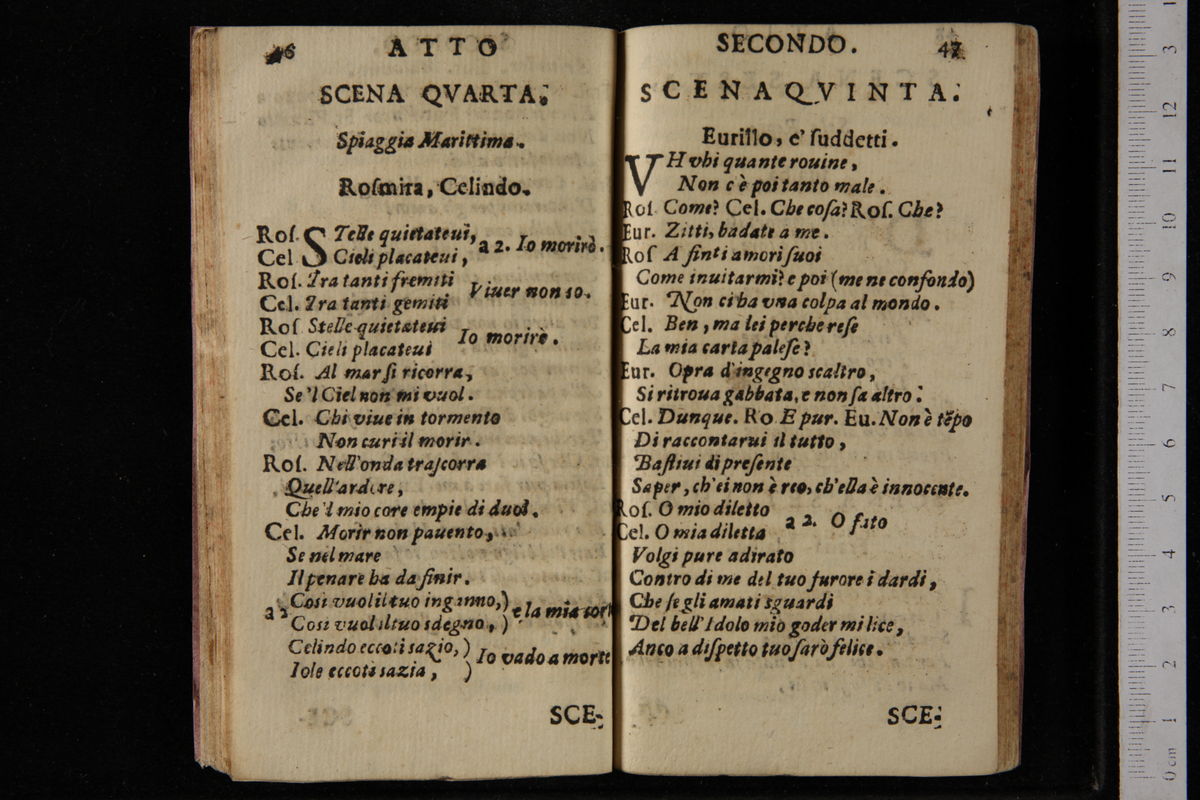 46 ATTO
SCENA QVARTA.
Spiaggia Marittima.
Roſmira, Celindo.
Roſ. STelle quietateui,
Cel Cieli placateui, a 2. Io morirò.
Roſ. Tra tanti fremiti
Cel. Tra tanti gemiti Viuer non so.
Roſ Stelle quietateui
Cel. Cieli placateui Io morirè.
Roſ. Al mar ſi ricorra,
Se'l Ciel non mi vuol.
Cel. Chi viue in tormento
Non curi il morir.
Roſ. Nell'onda traſcorra
Quell'ardore,
Che'l mio core empie di duol.
Cel. Morir non pauento,
Se nel mare
Il penare ha da finir.
a 2 Cosi vuol il tuo inganno,)
Cosi vuol il tuo sdegno,) e la mia sort
Celindo eccoti sazio,)
Iole eccoti sazia,) Io vado a morte
SCE-
SECONDO. 47
SCENA QVINTA.
Eurillo, e' ſuddetti.
VH vhi quante rouine,
Non c'è poi tanto male.
Roſ. Come? Cel. Che coſa? Roſ. Che?
Eur. Zitti, badate a me.
Roſ A finti amori ſuoi
Come inuitarmi? e poi (me ne confondo)
Eur. Non ci ha vna colpa al mondo.
Cel. Ben, ma lei perche reſe
La mia carta paleſe?
Eur. Opra d'ingegno scaltro,
Si ritroua gabbata, e non ſa altro.
Cel. Dunque. Ro E pur. Eu. Non è tẽpo
Di raccontarui il tutto,
Baſtiui di preſente
Saper, ch'ei non è reo, ch'ella è innocente.
Roſ. O mio diletto
Cel. O mia diletta a 2. O fato
Volgi pure adirato
Contro di me del tuo furore i dardi,
Che ſe gli amati sguardi
Del bell'Idolo mio goder mi lice,
Anco a diſpetto tuo ſarò felice.
SCE-
0 cm 1 2 3 4 5 6 7 8 9 10 11 12 3